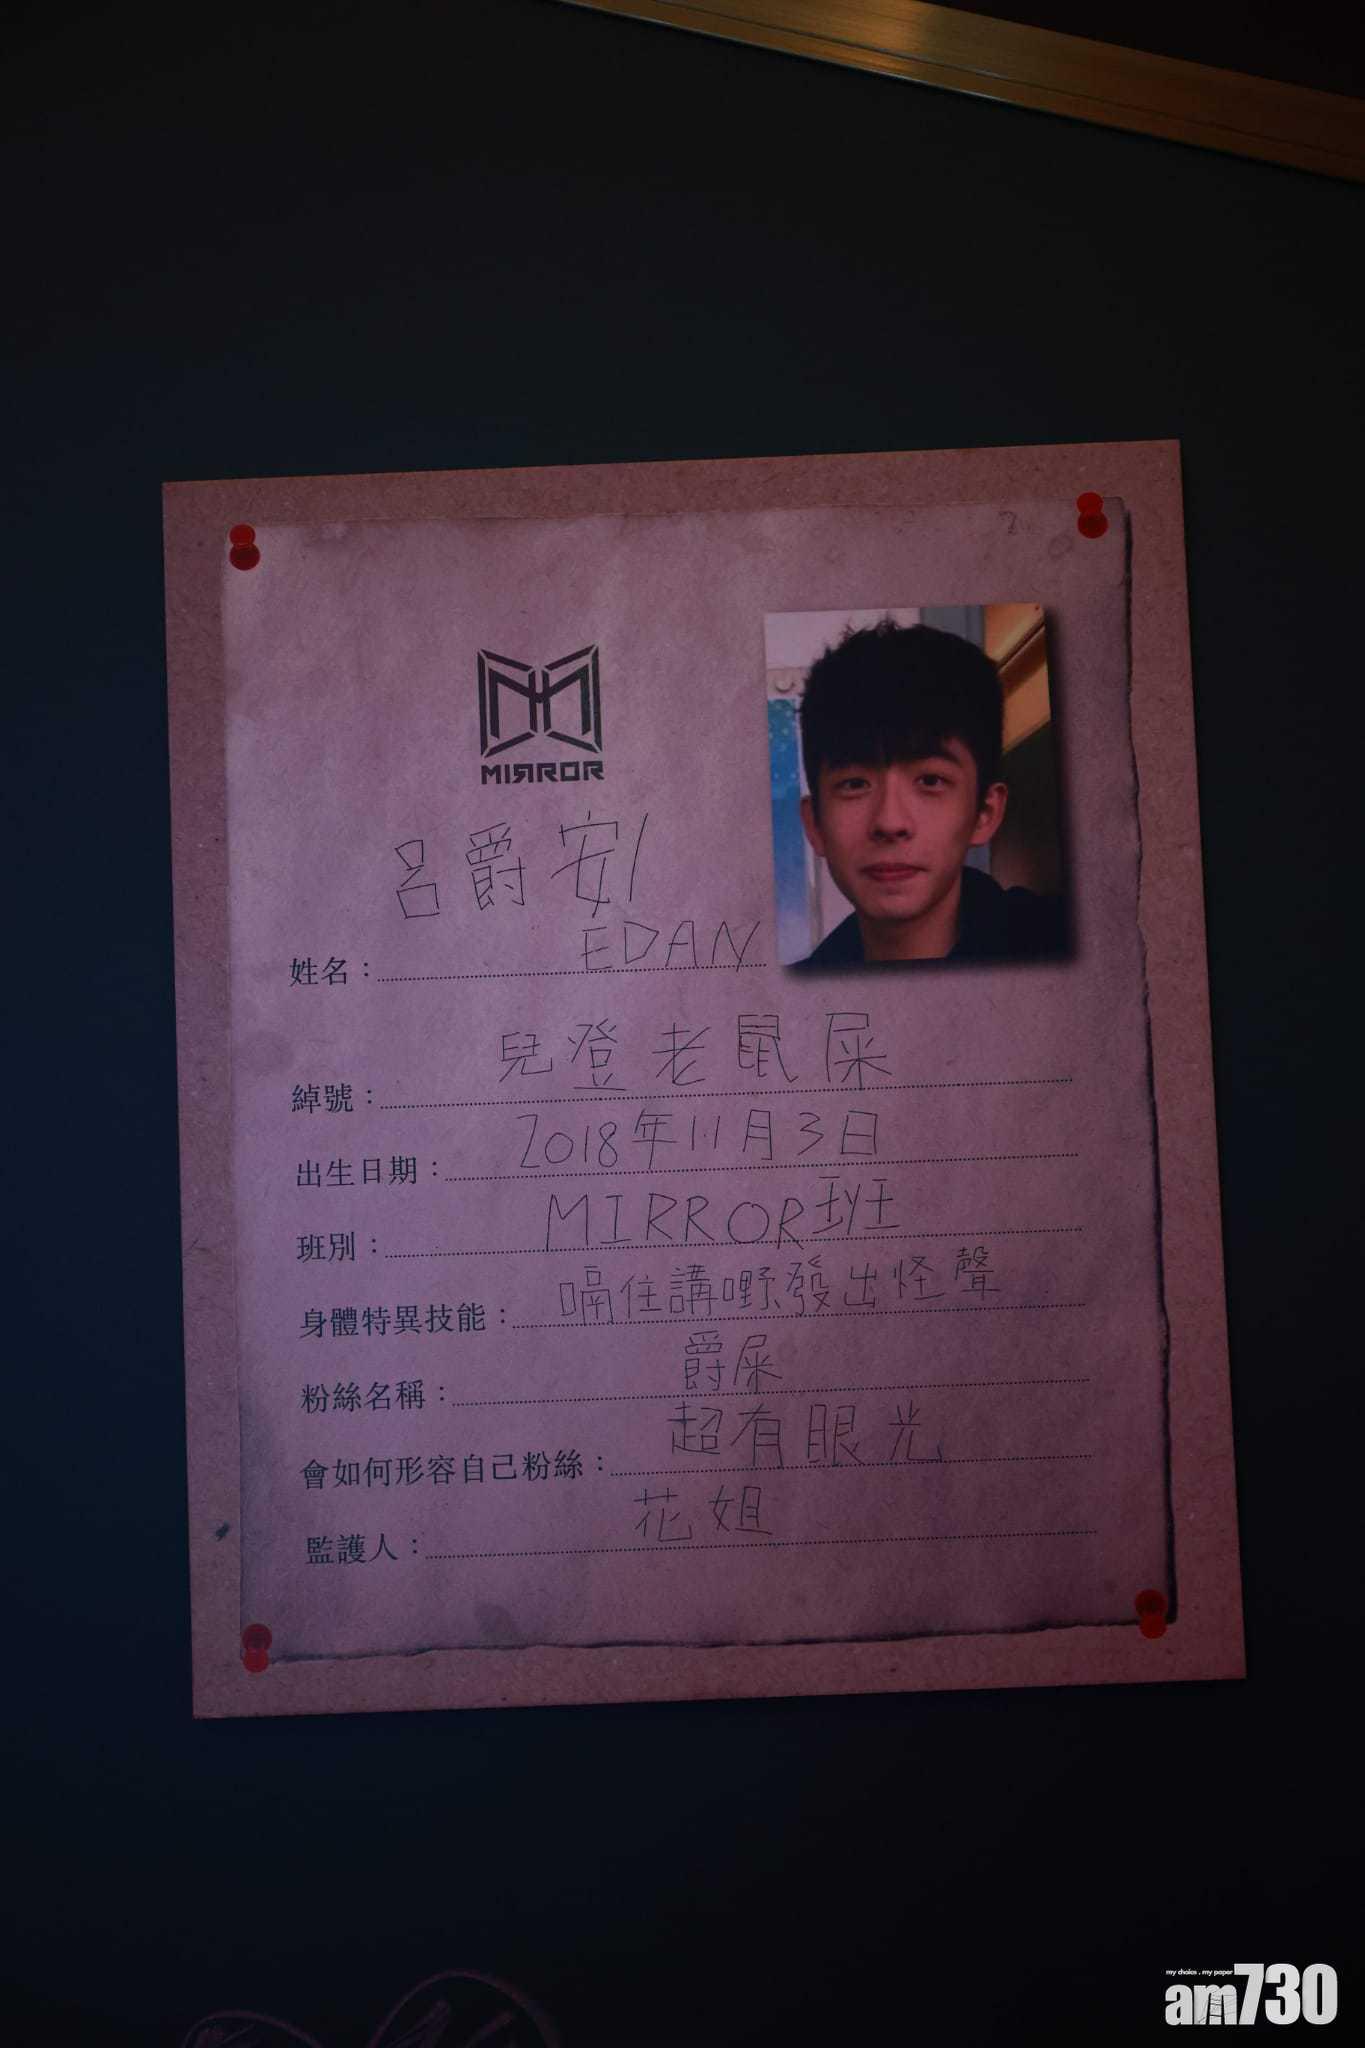 MIRROR
呂爵安
姓名：EDAN
綽號：兒登老鼠屎
出生日期：2018年11月3日
班別：MIRROR班
身體特異技能：嗝住講嘢發出怪聲
粉絲名稱：爵屎
會如何形容自己粉絲：超有眼光
監護人：花姐
my choice . my paper
am730